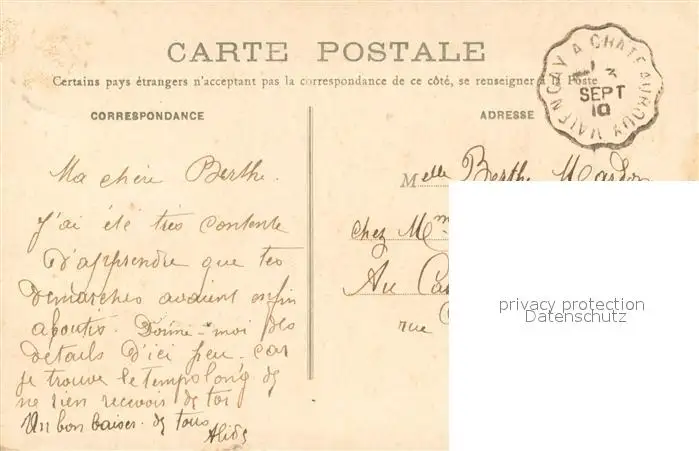 CARTE POSTALE
Certains pays étrangers n'acceptant pas la correspondance de ce côté, se renseigner à la Poste
CORRESPONDANCE
Ma chère Berthe.
J'ai été très contente
d'apprendre que tes
démarches avaient enfin
abouties. Donne-moi des
détails d'ici peu. car
je trouve le temps long de
ne rien recevoir de toi
Un bon baiser. de tous
ADRESSE
Melle Berthe
chez Mm
Au Ca
rue
VALENCAY A CHATEAUROUX
3
SEPT
10
privacy protection
Datenschutz